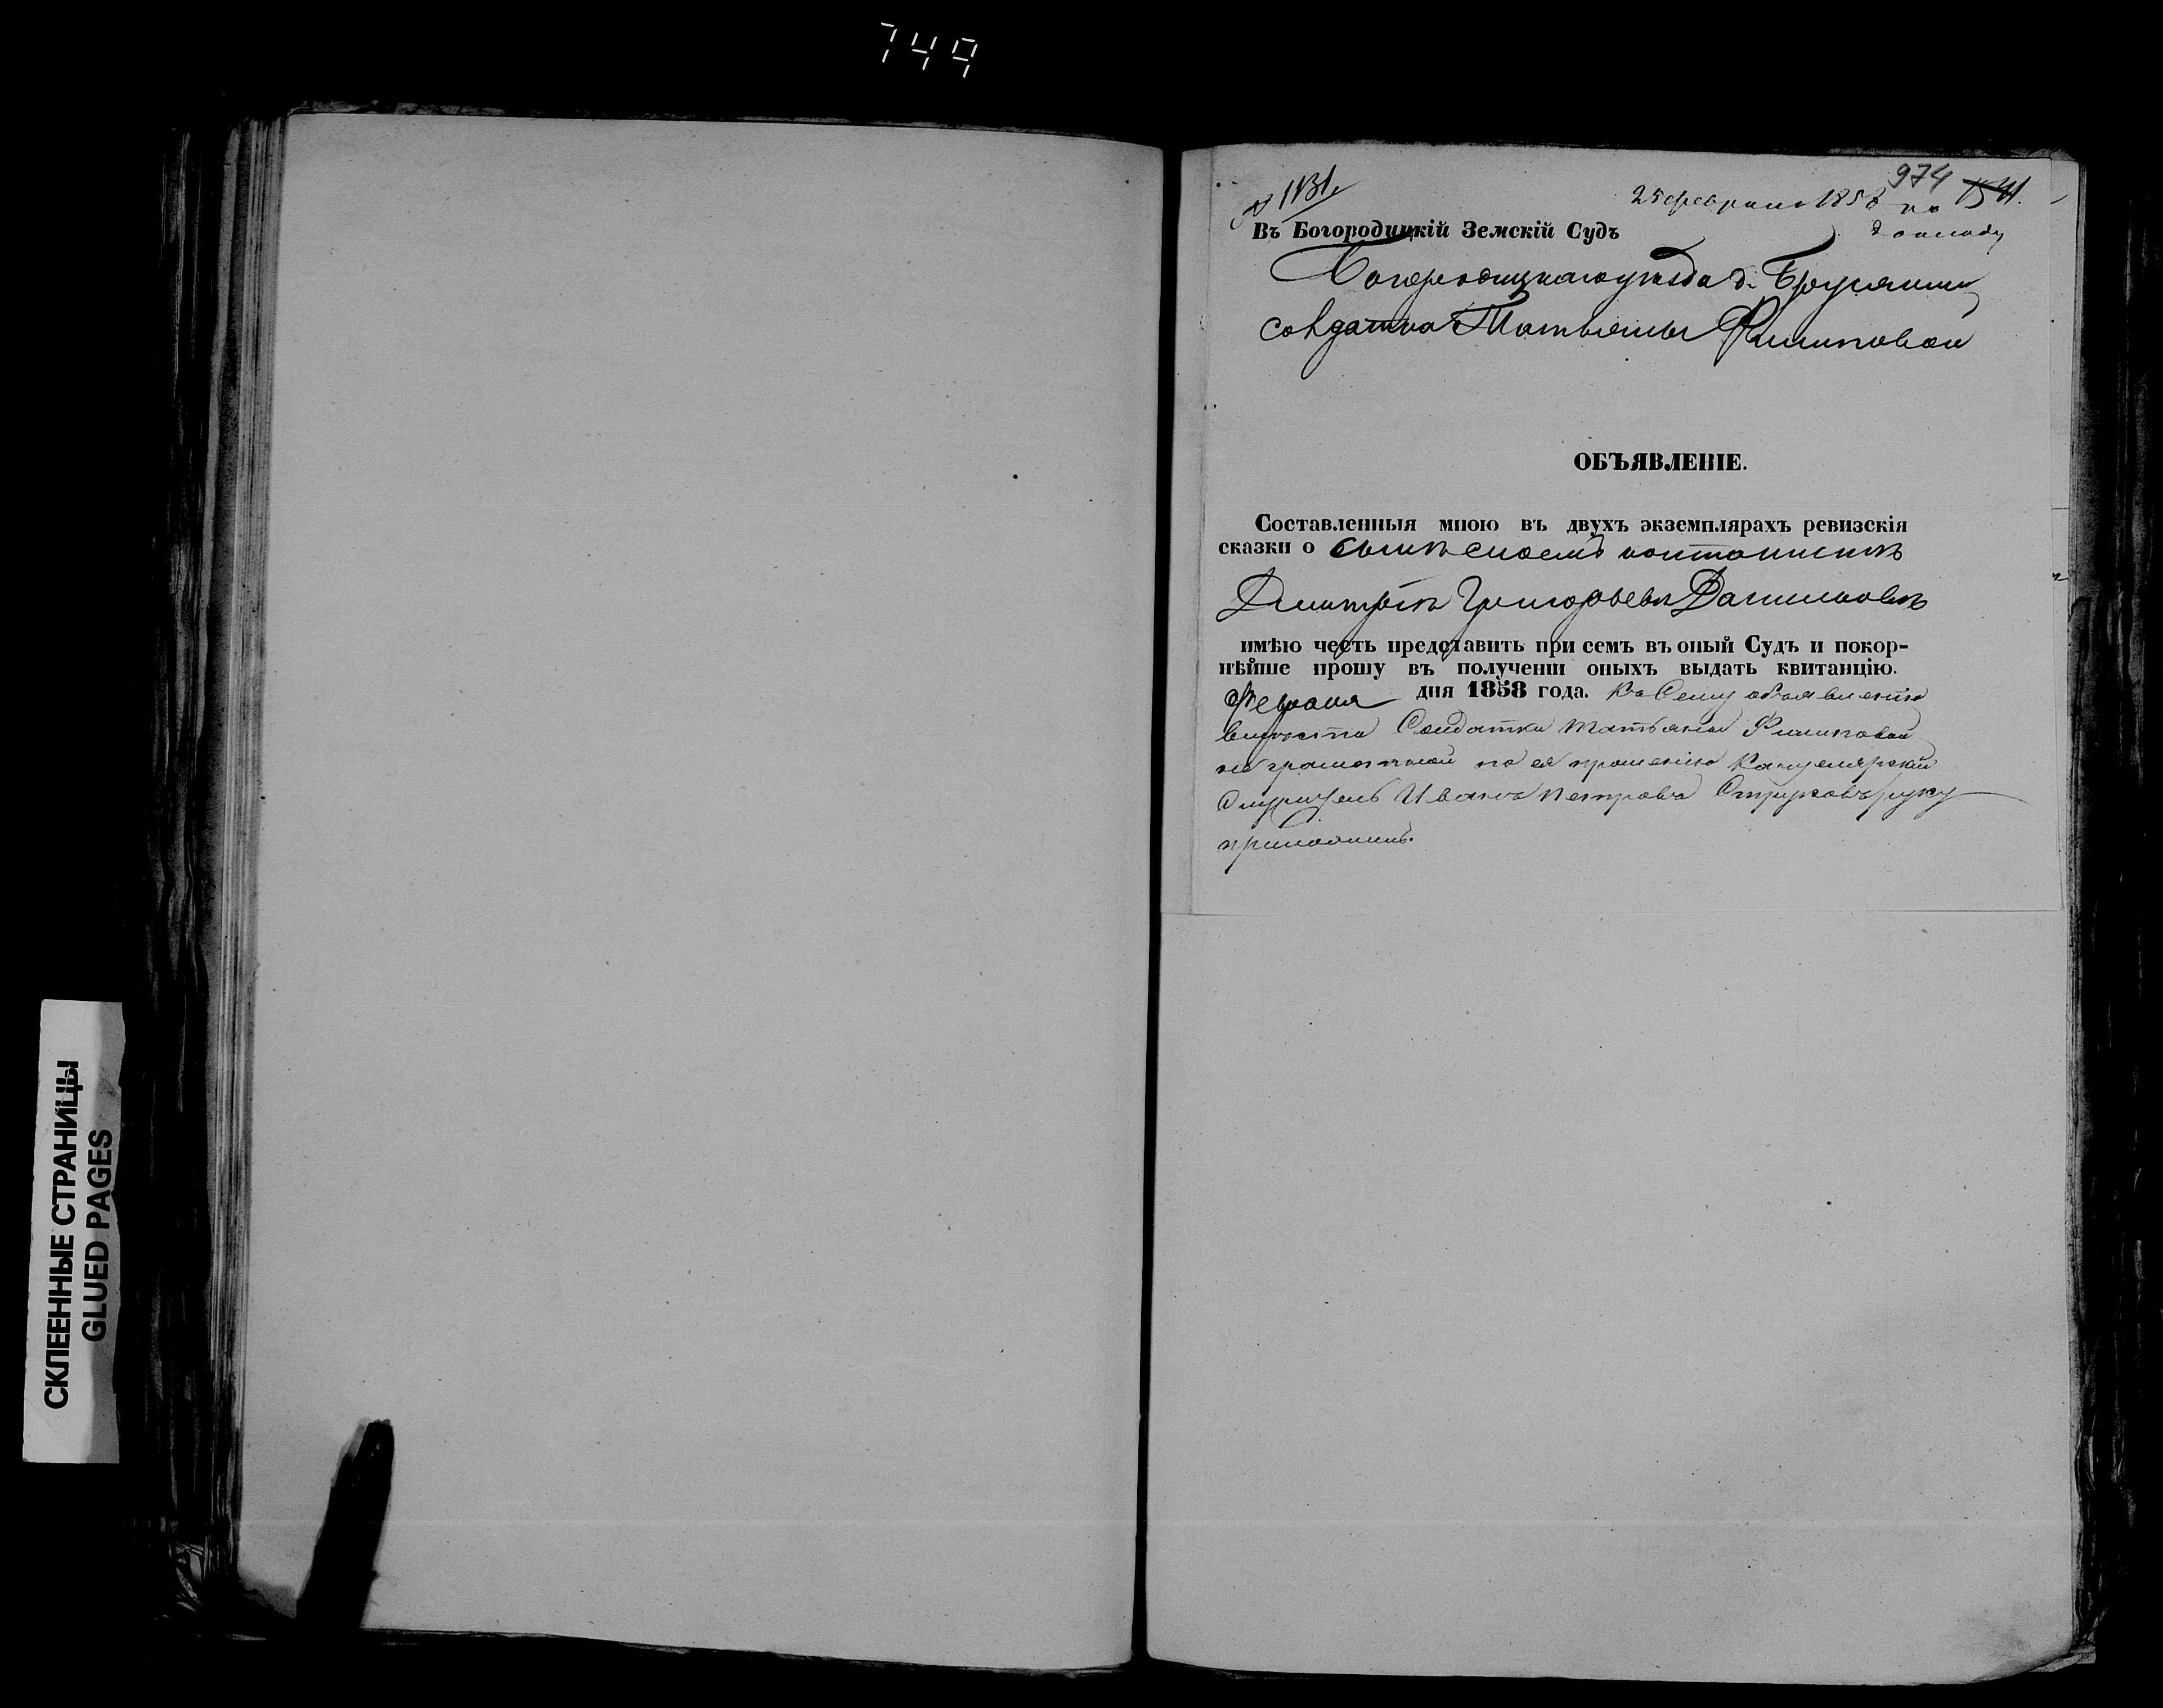 749
974
№ 1131
25 февраля 1858 по 1541.
докладу
Въ Богородицкій Земскій Судъ
Богородицкаго уѣзда д.
Солдатки Татьяны Филиповой
ОБЪЯВЛЕНІЕ.
Составленныя мною въ двухъ экземплярахъ ревизскія
сказки о сынѣ моемъ кантонистѣ
Дмитріѣ Григорьевѣ
имѣю честь представить при семъ въ оный Судъ и покор-
нѣйше прошу въ полученіи оныхъ выдать квитанцію.
Февраля дня 1858 года. Къ сему объявленію
вмѣсто Солдатки Татьяны Филиповой
не грамотной по ея прошенію Канцелярскій
Служитель Иванъ Петровъ руку
приложилъ.
СКЛЕЕННЫЕ СТРАНИЦЫ
GLUED PAGES